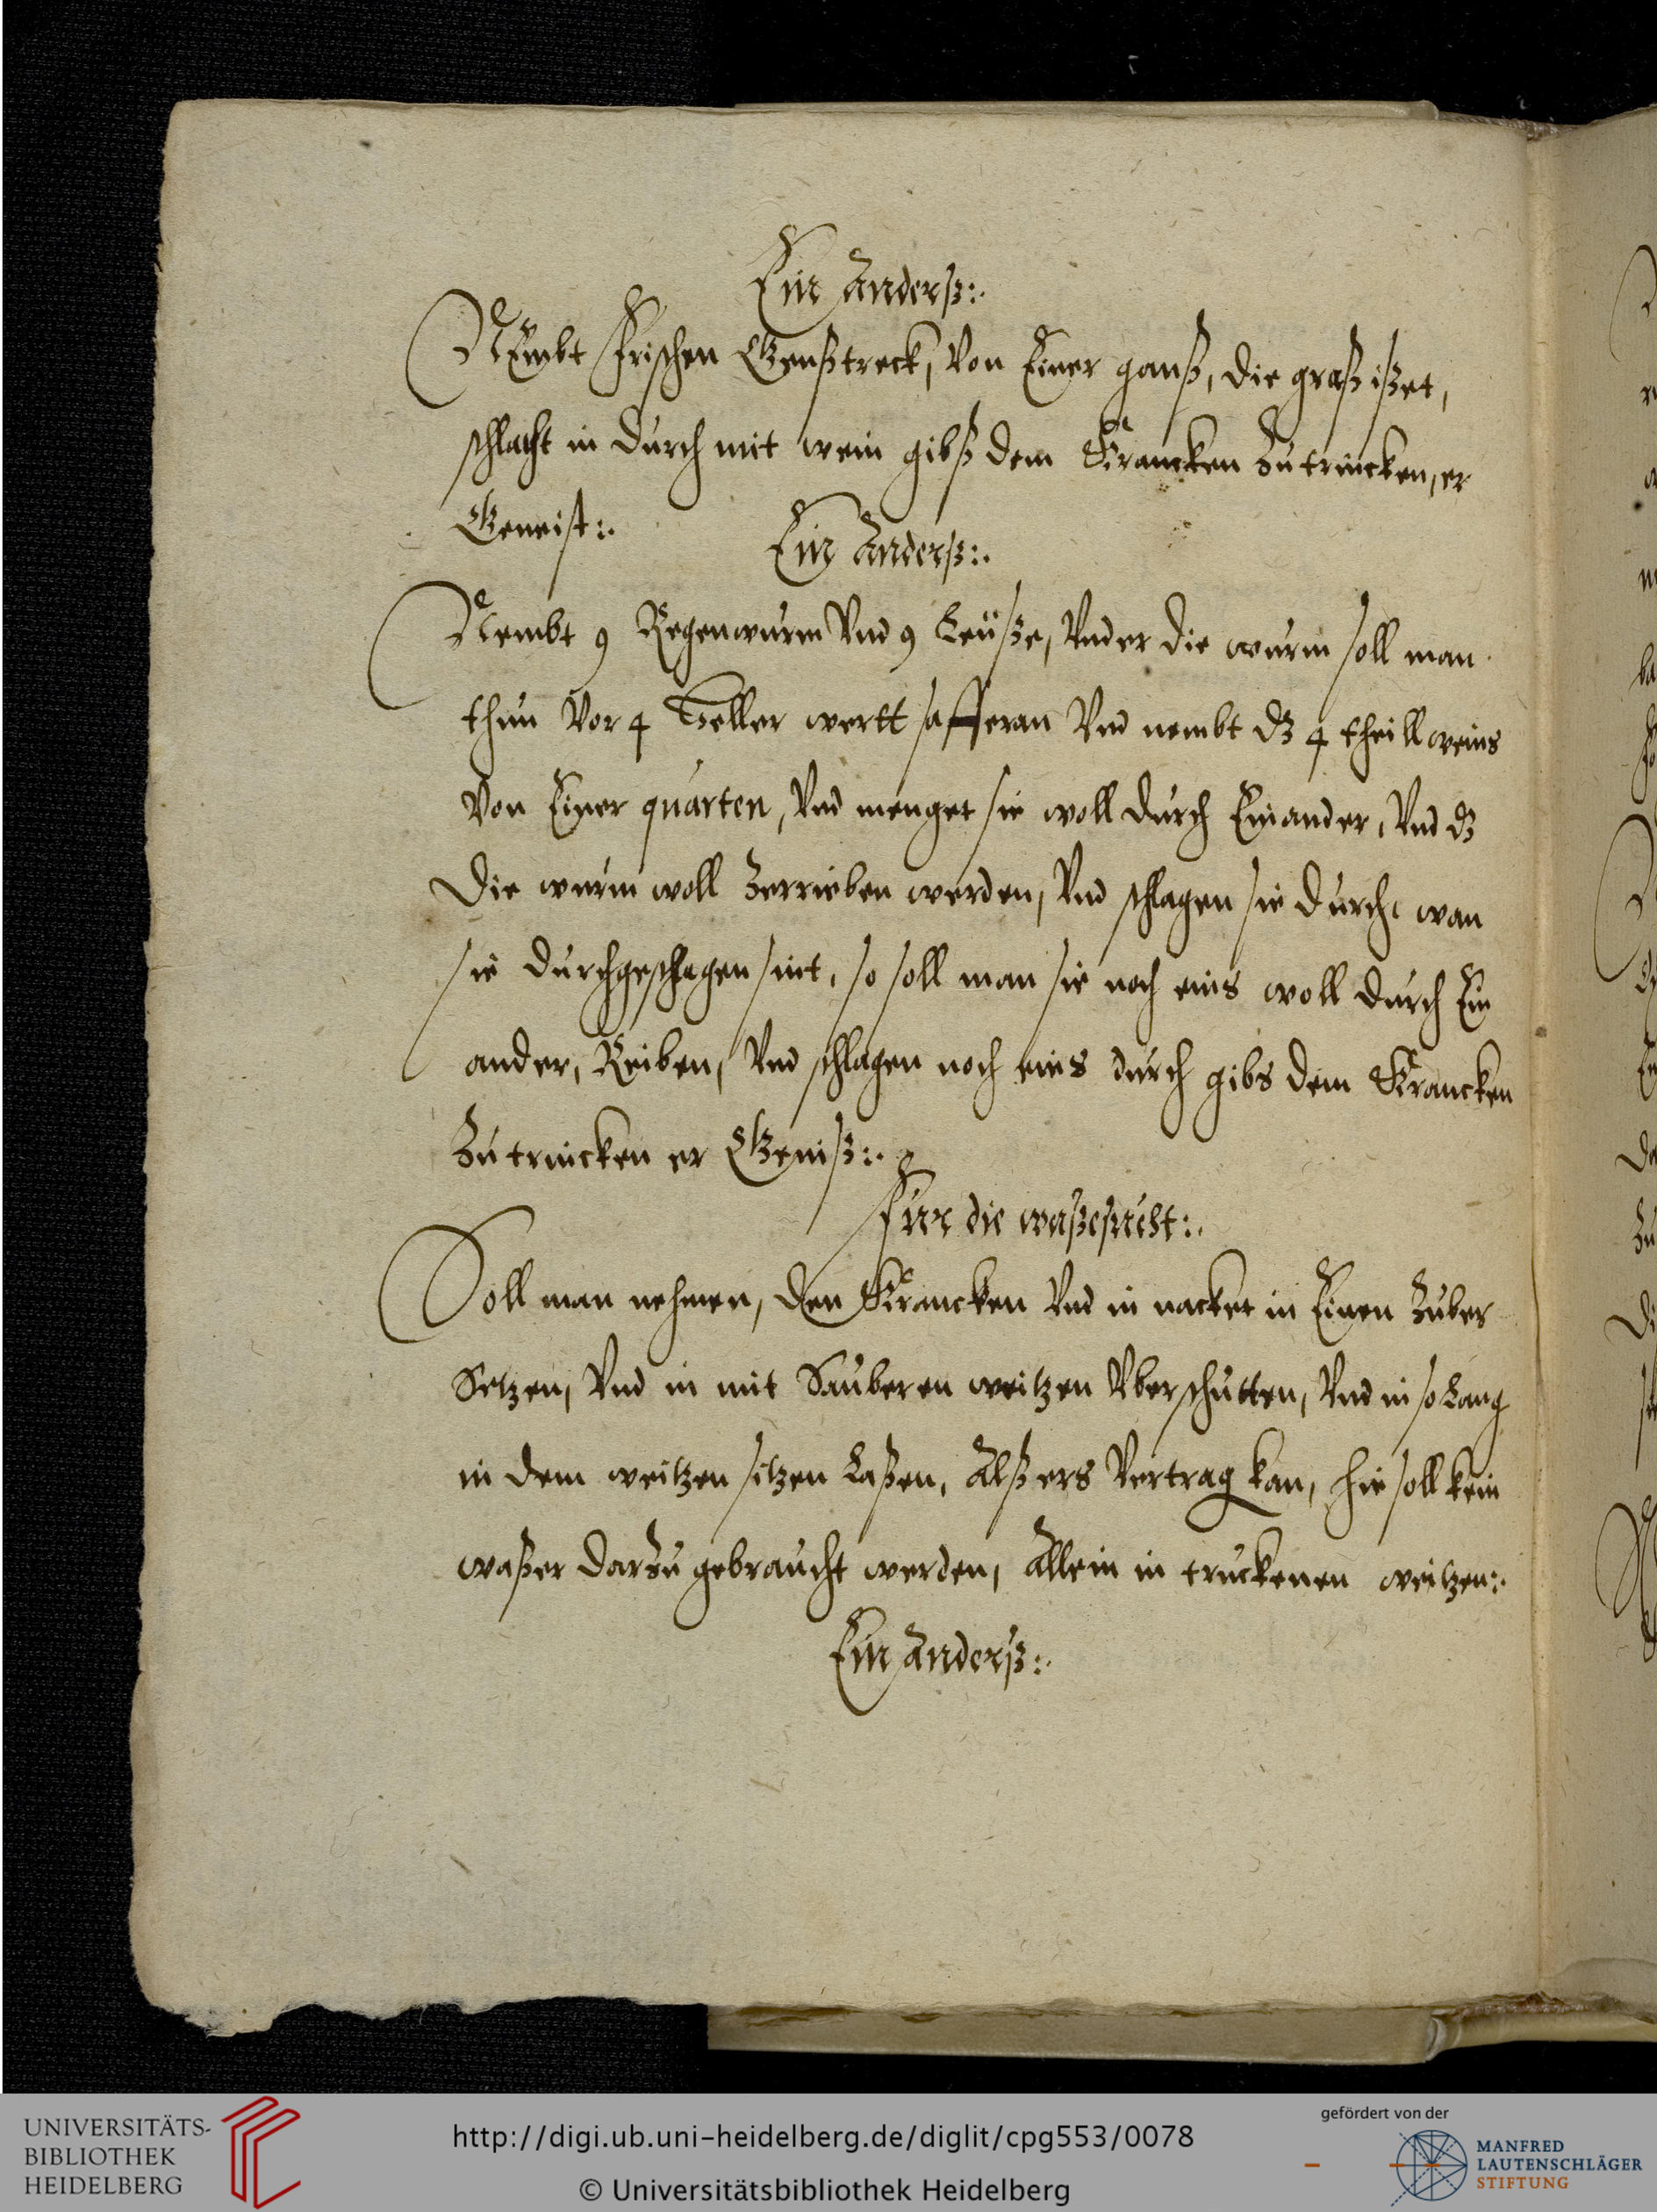 Ein Anderß:.
Nembt frischen Genßtreck, Von Einer ganß, die graß ißet,
schlacht in durch mit wein gibß dem Krancken Zutrincken, er
Geneist:.
Ein Anderß:.
Nembt 9 Regenwurm Vnd 9 Leüße, Vnder die wurm soll man
thun Vor 4 Heller wertt safferan Vnd nembt dz 4 theill weins
Von Einer quarten, Vnd menget sie woll durch Einander, Vnd dz
die wurm woll Zerrieben werden, Vnd schlagen sie durch, wan
sie durchgeschlagen sint, so soll man sie noch eins woll durch Ein
ander, Reiben, Vnd schlagen noch eins durch gibs dem Krancken
Zutrincken er Geniß:.
Fur die waßesucht:.
Soll man nehmen, den Krancken Vnd in nacket in Einen Zuber
Setzen, Vnd in mit Sauberen weitzen Vberschutten, Vnd in so Lang
in dem weitzen sitzen Laßen, Alß ers Vertrag kan, hie soll kein
waßer darzu gebraucht werden, Allein in truckenen weitzen:.
Ein Anderß:.
UNIVERSITÄTS-
BIBLIOTHEK
HEIDELBERG
http://digi.ub.uni-heidelberg.de/diglit/cpg553/0078
© Universitätsbibliothek Heidelberg
gefördert von der
MANFRED
LAUTENSCHLÄGER
STIFTUNG